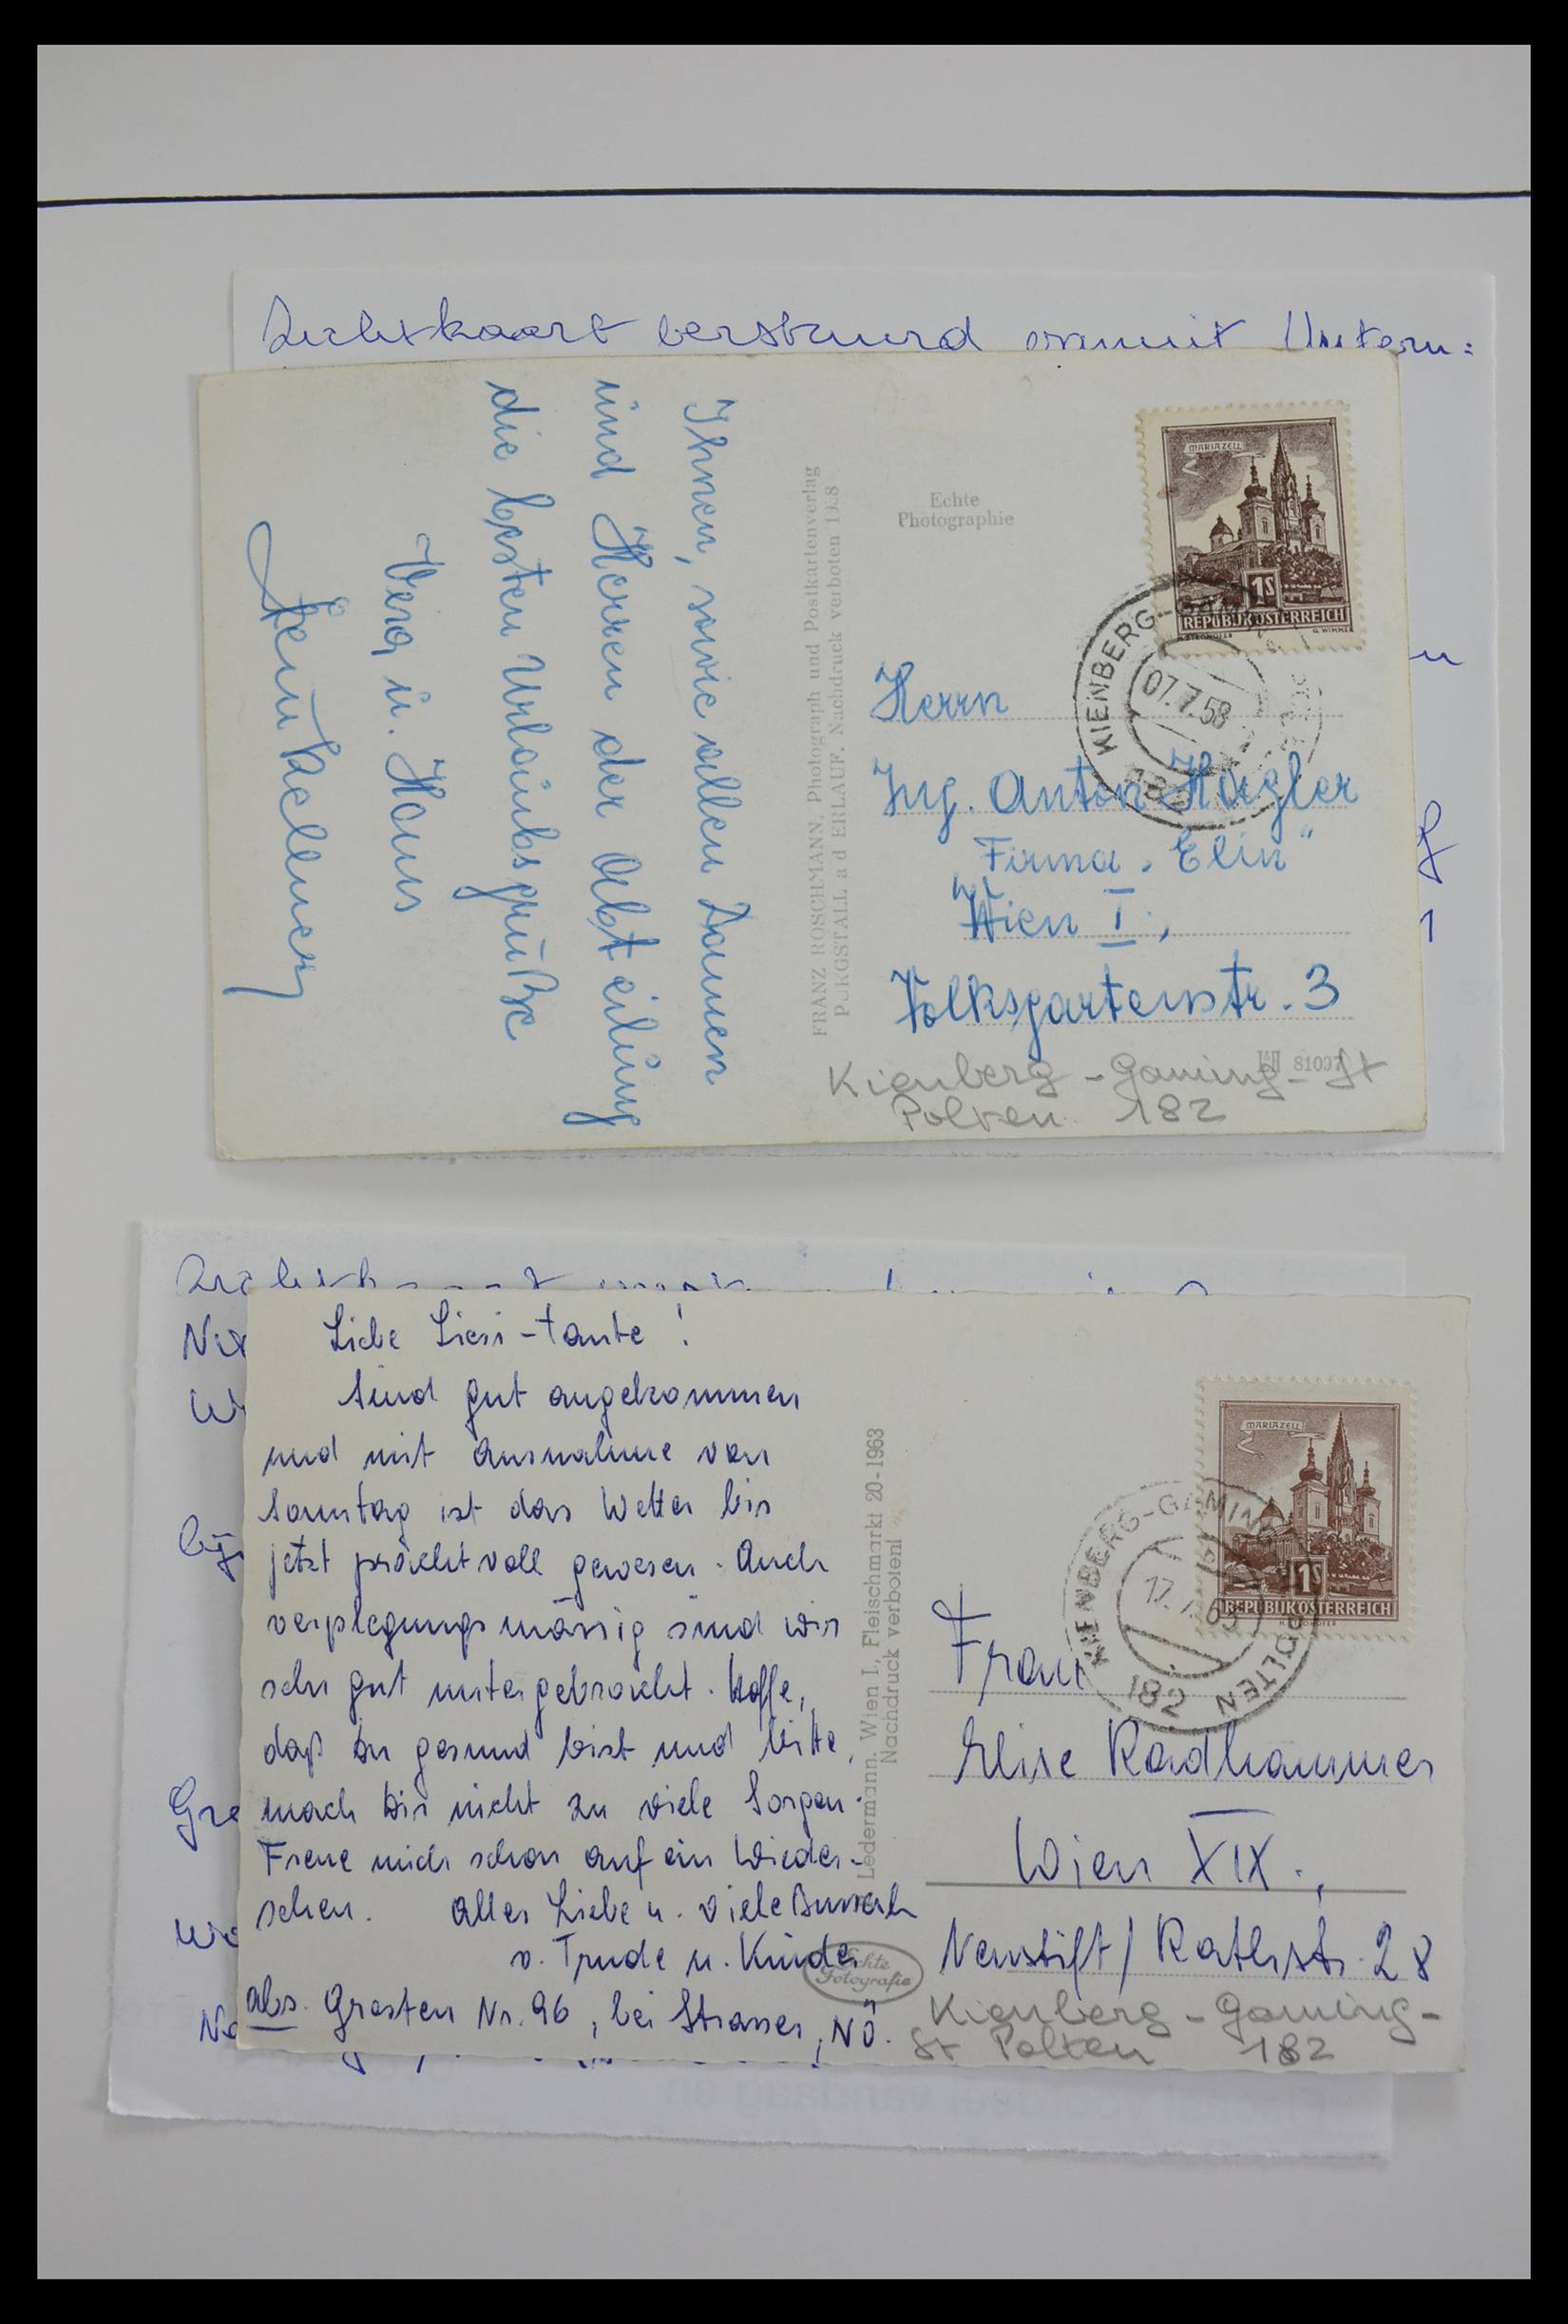 Unterm:
MARIAZELL
1S
REPUBLIK ÖSTERREICH
KIENBERG-GAMING
07.7.58
182
Echte
Photographie
Ihnen, sowie allen Damen
und Herren der Abteilung
die besten Urlaubsgrüße
Vera u. Hans
FRANZ ROSCHMANN, Photograph und Postkartenverlag
PURGSTALL a d ERLAUF. Nachdruck verboten 1958
Herrn
Ing. Anton Hagler
Firma „Elin"
Wien I.,
Volksgartenstr. 3
81097
Kienberg - Gaming - St
Polten 182
Liebe Liesi-tante!
Sind gut angekommen
und mit Ausnahme von
Sonntag ist das Wetter bis
jetzt prachtvoll gewesen. Auch
verplegungsmässig sind wir
sehr gut untergebracht. Hoffe,
daß Du gesund bist und bitte,
mach Dir nicht zu viele Sorgen.
Freue mich schon auf ein Wieder-
sehen. Alles Liebe u. viele Busserln
v. Trude u. Kinder
abs. Gresten Nr. 96, bei Strasser, NÖ.
Ledermann, Wien I., Fleischmarkt 20-1963
Nachdruck verboten!
Echte
Fotografie
MARIAZELL
1S
REPUBLIK ÖSTERREICH
KIENBERG-GAMING
PÖLTEN
182
Frau
Elise Radhammer
Wien XIX.,
Neustift / Rathstr. 28
Kienberg - Gaming -
St Polten 182